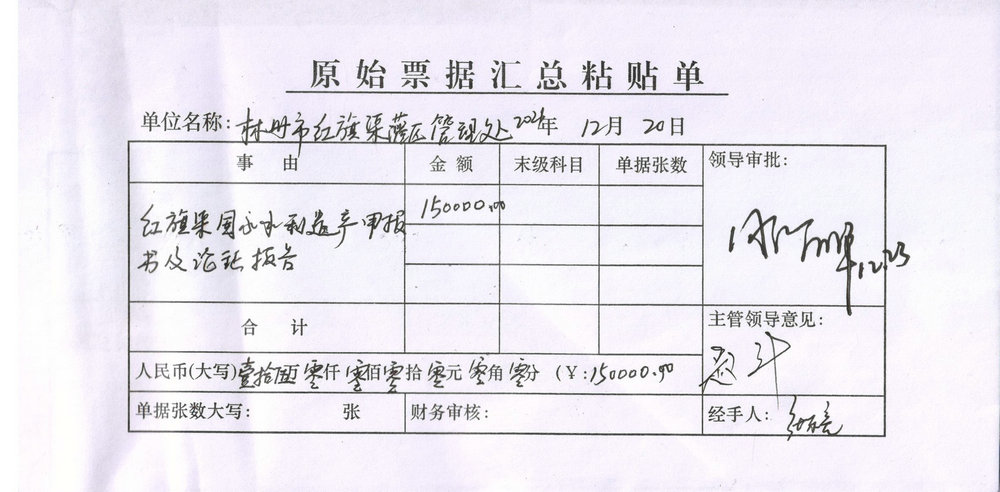 原始票据汇总粘贴单
单位名称：林州市红旗渠灌区管理处 2024年 12月 20日
事 由 金 额 末级科目 单据张数 领导审批：
红旗渠国家水利遗产申报 150000.00
书及论证报告
12.23
合 计 主管领导意见：
人民币(大写)壹拾伍万零仟零佰零拾零元零角零分 （¥：150000.00
单据张数大写： 张 财务审核： 经手人：